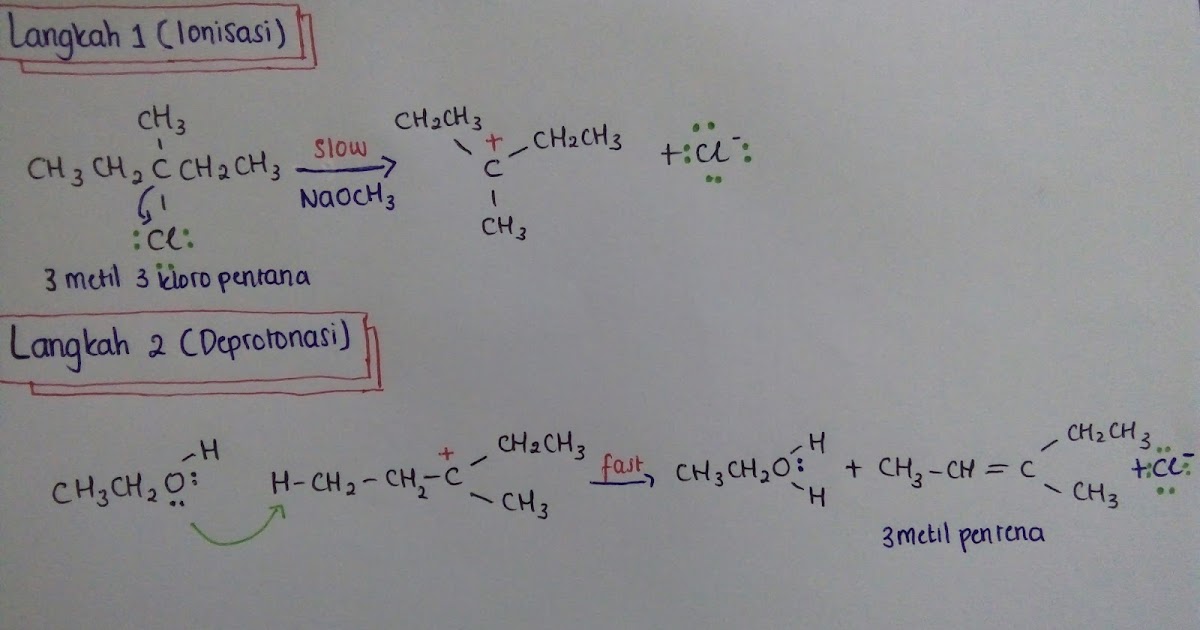 Langkah 1 (Ionisasi)
CH3
CH3 CH2 C CH2CH3
:Cl:
slow
NaOCH3
CH2CH3
+
CH2CH3
C
CH3
+ :Cl-:
3 metil 3 kloro pentana
Langkah 2 (Deprotonasi)
H
CH3CH2O:
H-CH2-CH2-C
+
CH2CH3
CH3
fast
CH3CH2O:
H
H
+ CH3-CH=C
CH2CH3
CH3
+:Cl-:
3 metil pentena